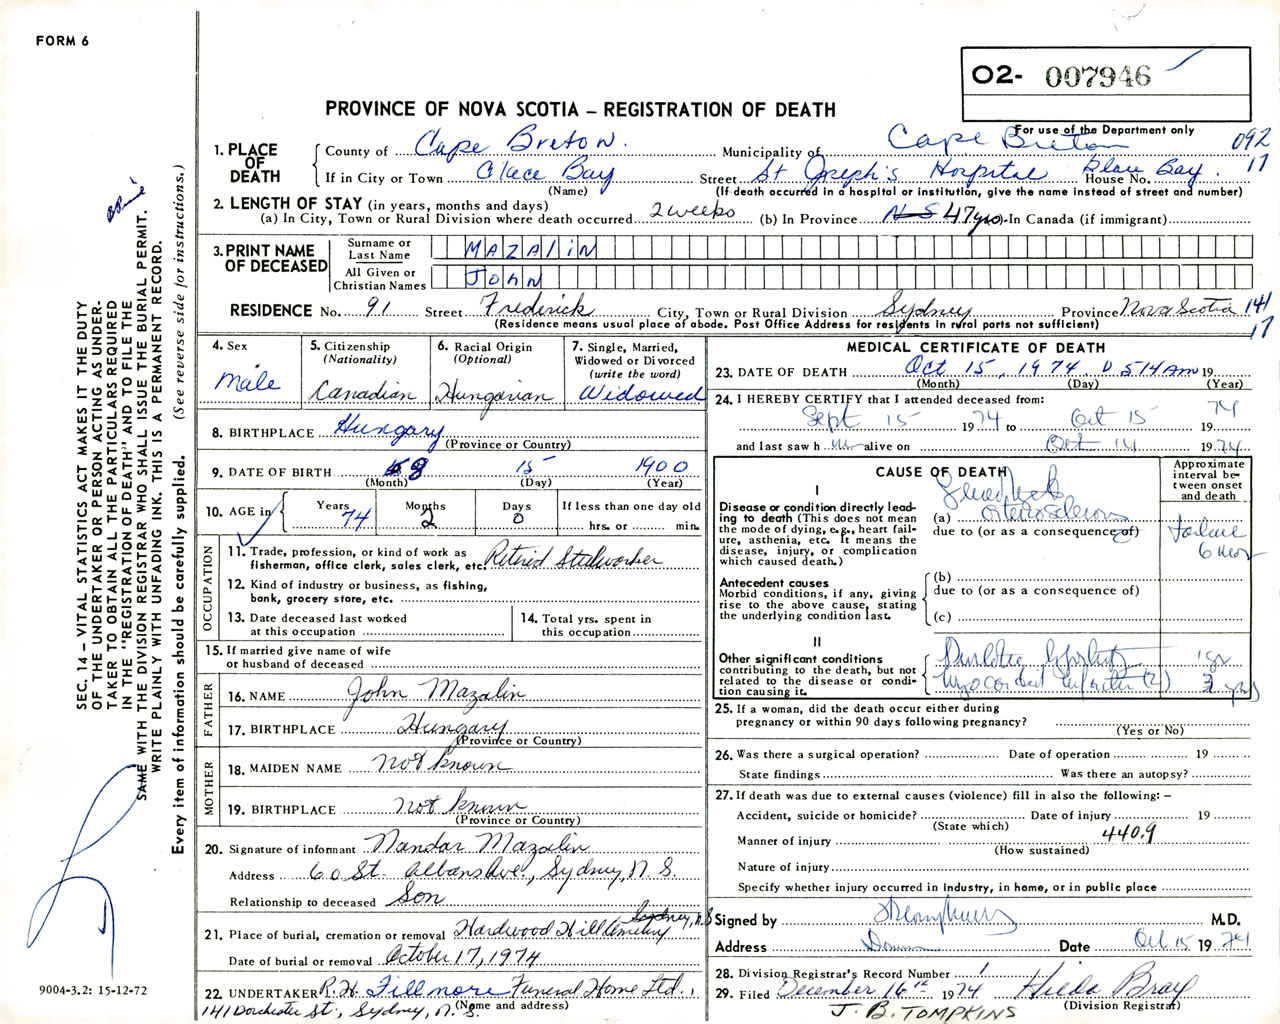 FORM 6
O2- 007946
For use of the Department only
PROVINCE OF NOVA SCOTIA – REGISTRATION OF DEATH
092
17
1. PLACE OF DEATH
County of Cape Breton Municipality of Cape Breton
If in City or Town Glace Bay (Name) Street St Joseph's Hospital House No. Glace Bay
(If death occurred in a hospital or institution, give the name instead of street and number)
2. LENGTH OF STAY (in years, months and days)
(a) In City, Town or Rural Division where death occurred 2 weeks (b) In Province N S 47 yrs In Canada (if immigrant)
3. PRINT NAME OF DECEASED
Surname or Last Name MAZALIN
All Given or Christian Names JOHN
RESIDENCE No. 91 Street Frederick City, Town or Rural Division Sydney Province Nova Scotia 141
17
(Residence means usual place of abode. Post Office Address for residents in rural parts not sufficient)
4. Sex
Male
5. Citizenship (Nationality)
Canadian
6. Racial Origin (Optional)
Hungarian
7. Single, Married, Widowed or Divorced (write the word)
Widowed
8. BIRTHPLACE Hungary
(Province or Country)
9. DATE OF BIRTH 8 15 1900
(Month) (Day) (Year)
10. AGE in Years 74 Months 2 Days 0 If less than one day old hrs. or min.
OCCUPATION
11. Trade, profession, or kind of work as fisherman, office clerk, sales clerk, etc. Retired Steelworker
12. Kind of industry or business, as fishing, bank, grocery store, etc.
13. Date deceased last worked at this occupation
14. Total yrs. spent in this occupation
15. If married give name of wife or husband of deceased
FATHER
16. NAME John Mazalin
17. BIRTHPLACE Hungary
(Province or Country)
MOTHER
18. MAIDEN NAME not known
19. BIRTHPLACE not known
(Province or Country)
20. Signature of informant Nandor Mazalin
Address 60 St. Albans Ave, Sydney, N. S.
Relationship to deceased Son
21. Place of burial, cremation or removal Hardwood Hill Cemetery Sydney, N.S
Date of burial or removal October 17, 1974
22. UNDERTAKER R. H. Fillmore Funeral Home Ltd.,
(Name and address)
141 Dorchester St., Sydney, N. S.
MEDICAL CERTIFICATE OF DEATH
23. DATE OF DEATH Oct 15, 1974 0514 AM 19
(Month) (Day) (Year)
24. I HEREBY CERTIFY that I attended deceased from:
Sept 15 1974 to Oct 15 1974
and last saw h im alive on Oct 14 1974
CAUSE OF DEATH
Approximate interval between onset and death
I
Disease or condition directly leading to death (This does not mean the mode of dying, e.g., heart failure, asthenia, etc. It means the disease, injury, or complication which caused death.)
(a) arteriosclerosis
due to (or as a consequence of)
failure
6
Antecedent causes
Morbid conditions, if any, giving rise to the above cause, stating the underlying condition last.
(b)
due to (or as a consequence of)
(c)
II
Other significant conditions contributing to the death, but not related to the disease or condition causing it.
1 yr
Myocardial infarction (2) yrs
25. If a woman, did the death occur either during pregnancy or within 90 days following pregnancy?
(Yes or No)
26. Was there a surgical operation? Date of operation 19
State findings Was there an autopsy?
27. If death was due to external causes (violence) fill in also the following: –
Accident, suicide or homicide? Date of injury 19
(State which)
Manner of injury 440.9
(How sustained)
Nature of injury
Specify whether injury occurred in Industry, in home, or in public place
Signed by M.D.
Address Date Oct 15 1974
28. Division Registrar's Record Number 1
29. Filed December 16th 1974 Hilda Bray
(Division Registrar)
J. B. TOMPKINS
SEC. 14 – VITAL STATISTICS ACT MAKES IT THE DUTY
OF THE UNDERTAKER OR PERSON ACTING AS UNDER-
TAKER TO OBTAIN ALL THE PARTICULARS REQUIRED
IN THE "REGISTRATION OF DEATH" AND TO FILE THE
SAME WITH THE DIVISION REGISTRAR WHO SHALL ISSUE THE BURIAL PERMIT.
WRITE PLAINLY WITH UNFADING INK. THIS IS A PERMANENT RECORD.
Every item of information should be carefully supplied. (See reverse side for instructions.)
9004-3.2: 15-12-72